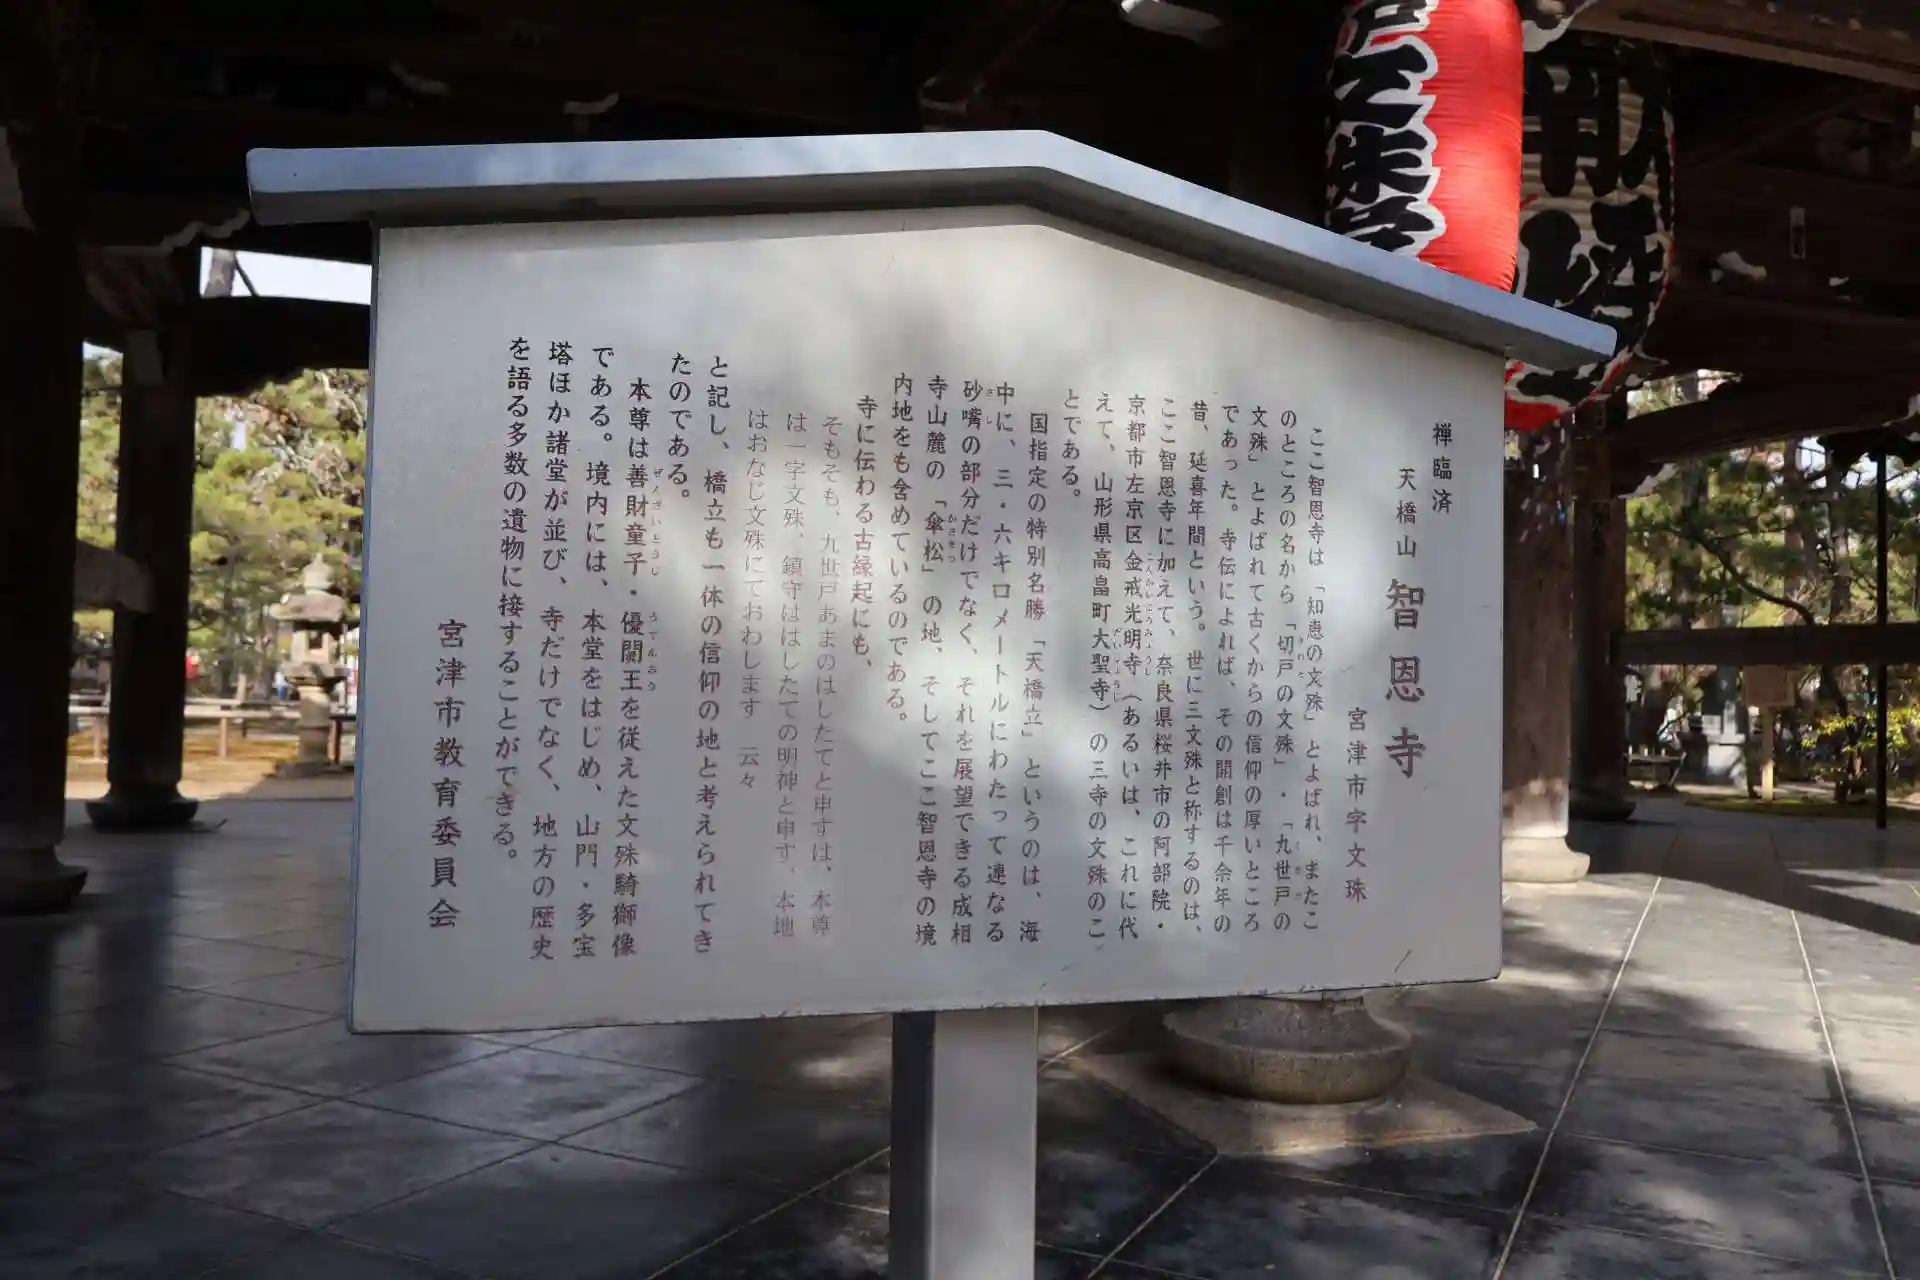 禅臨済
天橋山 智恩寺
宮津市字文珠
ここ智恩寺は「知恵の文殊」とよばれ、またこ
のところの名から「切戸の文殊」・「九世戸の
文殊」とよばれて古くからの信仰の厚いところ
であった。寺伝によれば、その開創は千余年の
昔、延喜年間という。世に三文殊と称するのは、
ここ智恩寺に加えて、奈良県桜井市の阿部院・
京都市左京区金戒光明寺（あるいは、これに代
えて、山形県高畠町大聖寺）の三寺の文殊のこ
とである。
国指定の特別名勝「天橋立」というのは、海
中に、三・六キロメートルにわたって連なる
砂嘴の部分だけでなく、それを展望できる成相
寺山麓の「傘松」の地、そしてここ智恩寺の境
内地をも含めているのである。
寺に伝わる古縁起にも、
そもそも、九世戸あまのはしたてと申すは、本尊
は一字文殊、鎮守ははしたての明神と申す。本地
はおなじ文殊にておわします 云々
と記し、橋立も一体の信仰の地と考えられてき
たのである。
本尊は善財童子・優闐王を従えた文殊騎獅像
である。境内には、本堂をはじめ、山門・多宝
塔ほか諸堂が並び、寺だけでなく、地方の歴史
を語る多数の遺物に接することができる。
宮津市教育委員会